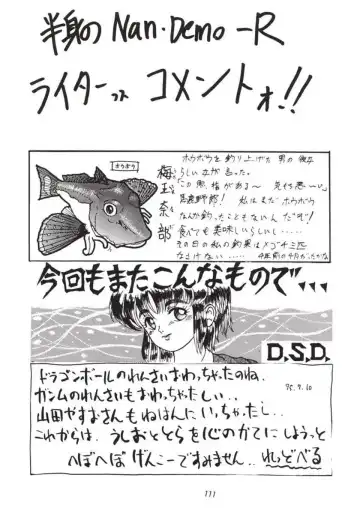 半身の Nan・Demo-R
ライターズ コメントオ!!
ホウボウ
梅玉奈部
ホウボウを釣り上げた男の彼女
らしい女が言った。
「この魚、指がある〜 気持悪〜い」
馬鹿野郎! 私はまだホウボウ
なんか釣ったこともないんだぞ!
食べても美味しいらしいし……
その日の私の釣果はメゴチ三匹
なさけない……
今回もまたこんなもので、、、
D.S.D.
ドラゴンボールのれんさいおわっちゃったのね。
ガンムのれんさいもおわっちゃたしい..
山田やすおさんもねはんにいっちゃたし..
これからは、うしおととらを心のかてにしようっと
へぼへぼげんこーですみません.. れっどべる
'95.7.10
111